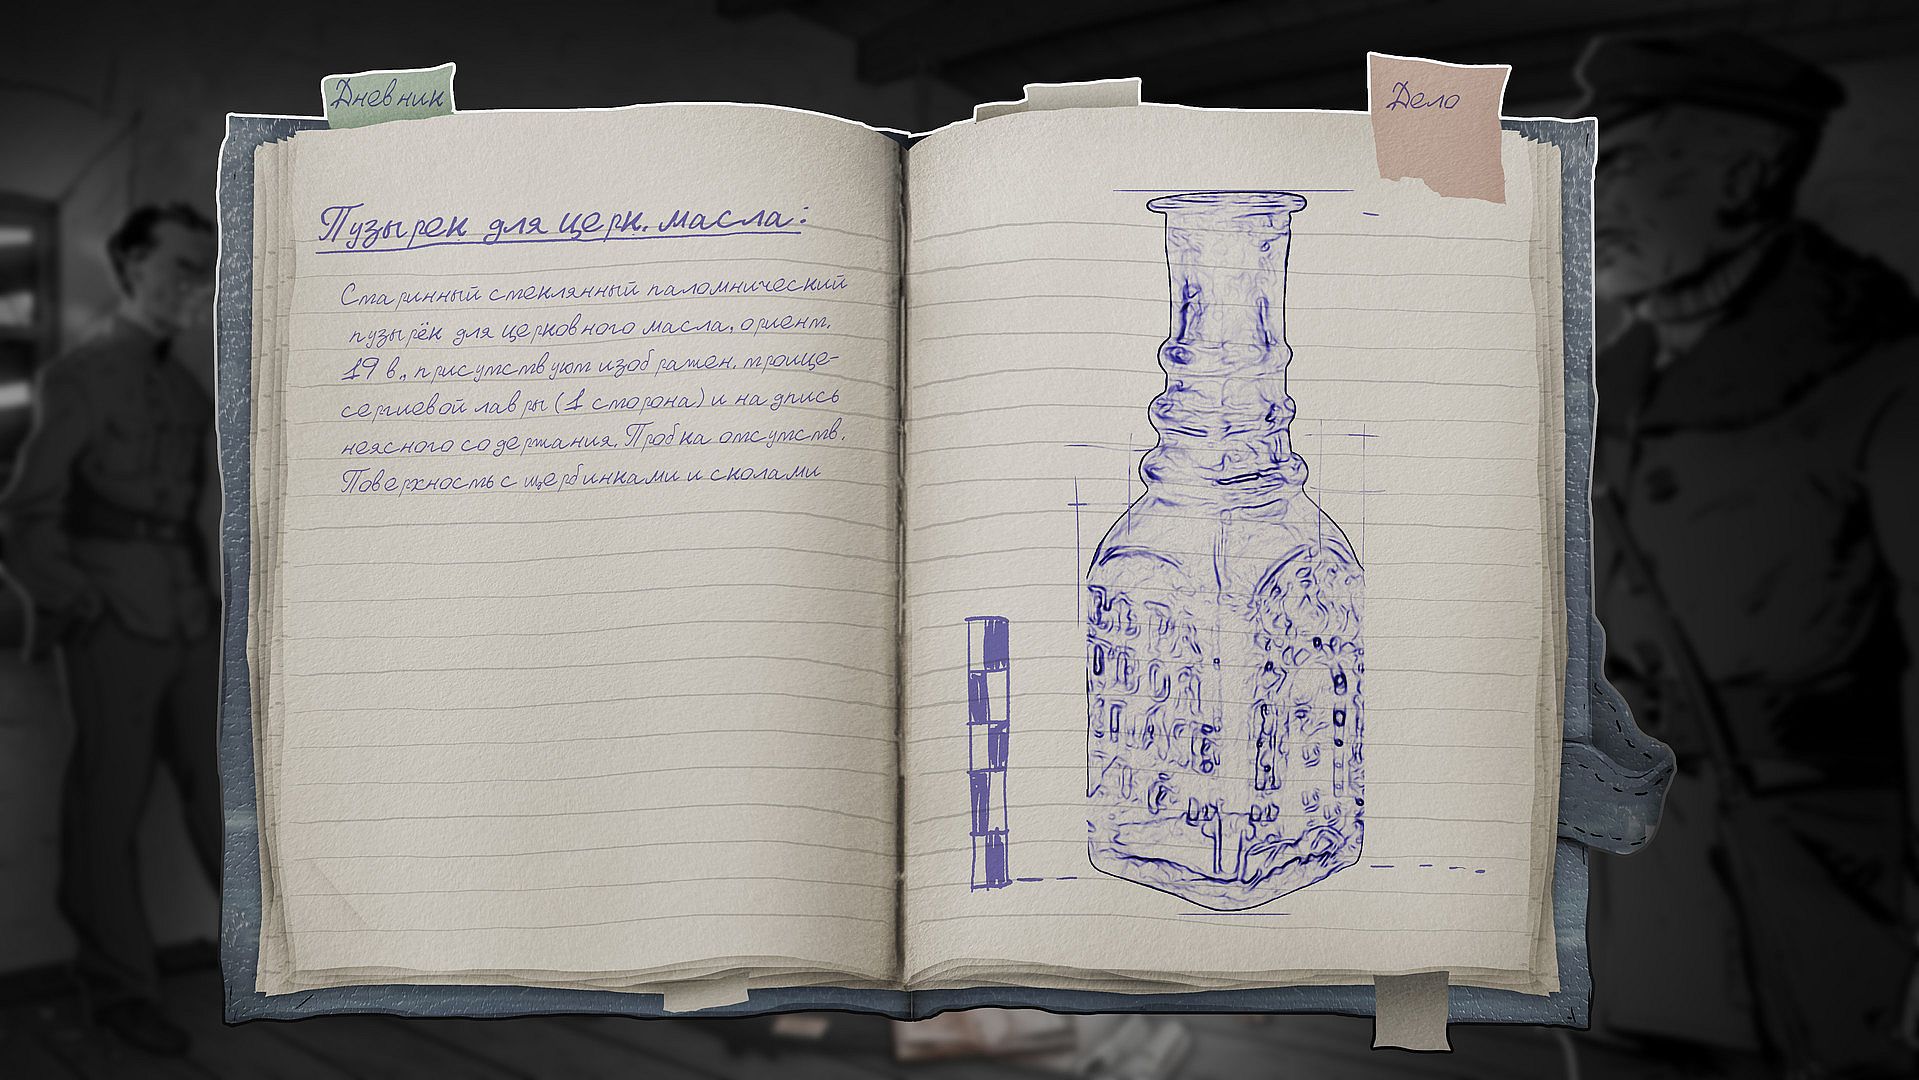 Дневник
Дело
Пузырек для церк. масла:
Старинный стеклянный паломнический
пузырёк для церковного масла, ориент.
19 в., присутствуют изображен. троице-
сергиевой лавры (1 сторона) и надпись
неясного содержания. Пробка отсутств.
Поверхность с щербинками и сколами